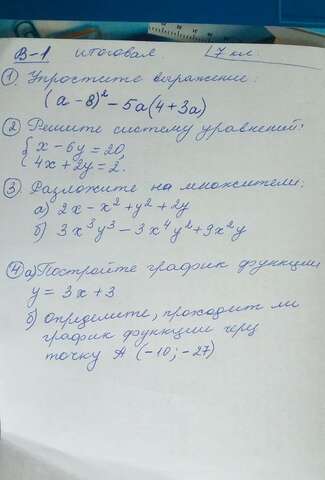 В-1 итоговая 7 кл.
① Упростите выражение:
(а - 8)² - 5а(4 + 3а)
② Решите систему уравнений:
{ х - 6у = 20,
4х + 2у = 2.
③ Разложите на множители:
а) 2х - х² + у² + 2у
б) 3х³у³ - 3х⁴у² + 9х²у
④ а) Постройте график функции
у = 3х + 3
б) определите, проходит ли
график функции черц
точку А (-10; -27)